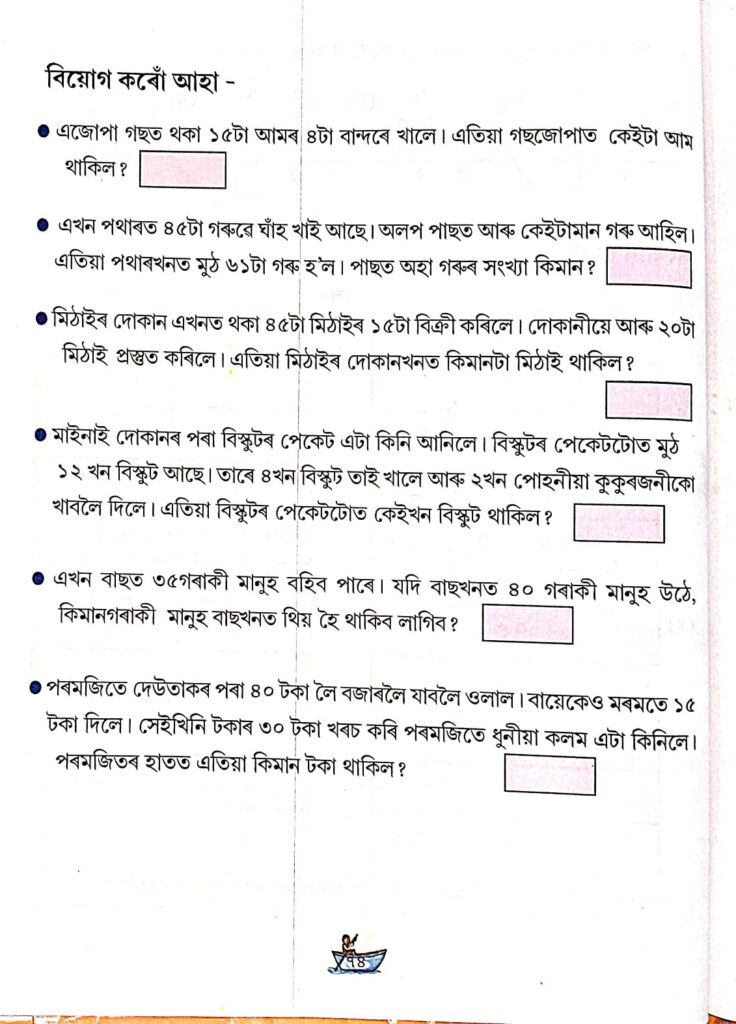 বিয়োগ কৰোঁ আহা -
● এজোপা গছত থকা ১৫টা আমৰ ৪টা বান্দৰে খালে। এতিয়া গছজোপাত কেইটা আম
থাকিল?
● এখন পথাৰত ৪৫টা গৰুৱে ঘাঁহ খাই আছে। অলপ পাছত আৰু কেইটামান গৰু আহিল।
এতিয়া পথাৰখনত মুঠ ৬১টা গৰু হ'ল। পাছত অহা গৰুৰ সংখ্যা কিমান?
● মিঠাইৰ দোকান এখনত থকা ৪৫টা মিঠাইৰ ১৫টা বিক্ৰী কৰিলে। দোকানীয়ে আৰু ২০টা
মিঠাই প্ৰস্তুত কৰিলে। এতিয়া মিঠাইৰ দোকানখনত কিমানটা মিঠাই থাকিল?
● মাইনাই দোকানৰ পৰা বিস্কুটৰ পেকেট এটা কিনি আনিলে। বিস্কুটৰ পেকেটটোত মুঠ
১২ খন বিস্কুট আছে। তাৰে ৪খন বিস্কুট তাই খালে আৰু ২খন পোহনীয়া কুকুৰজনীকো
খাবলৈ দিলে। এতিয়া বিস্কুটৰ পেকেটটোত কেইখন বিস্কুট থাকিল?
● এখন বাছত ৩৫গৰাকী মানুহ বহিব পাৰে। যদি বাছখনত ৪০ গৰাকী মানুহ উঠে,
কিমানগৰাকী মানুহ বাছখনত থিয় হৈ থাকিব লাগিব?
● পৰমজিতে দেউতাকৰ পৰা ৪০ টকা লৈ বজাৰলৈ যাবলৈ ওলাল। বায়েকেও মৰমতে ১৫
টকা দিলে। সেইখিনি টকাৰ ৩০ টকা খৰচ কৰি পৰমজিতে ধুনীয়া কলম এটা কিনিলে।
পৰমজিতৰ হাতত এতিয়া কিমান টকা থাকিল?
৭৪